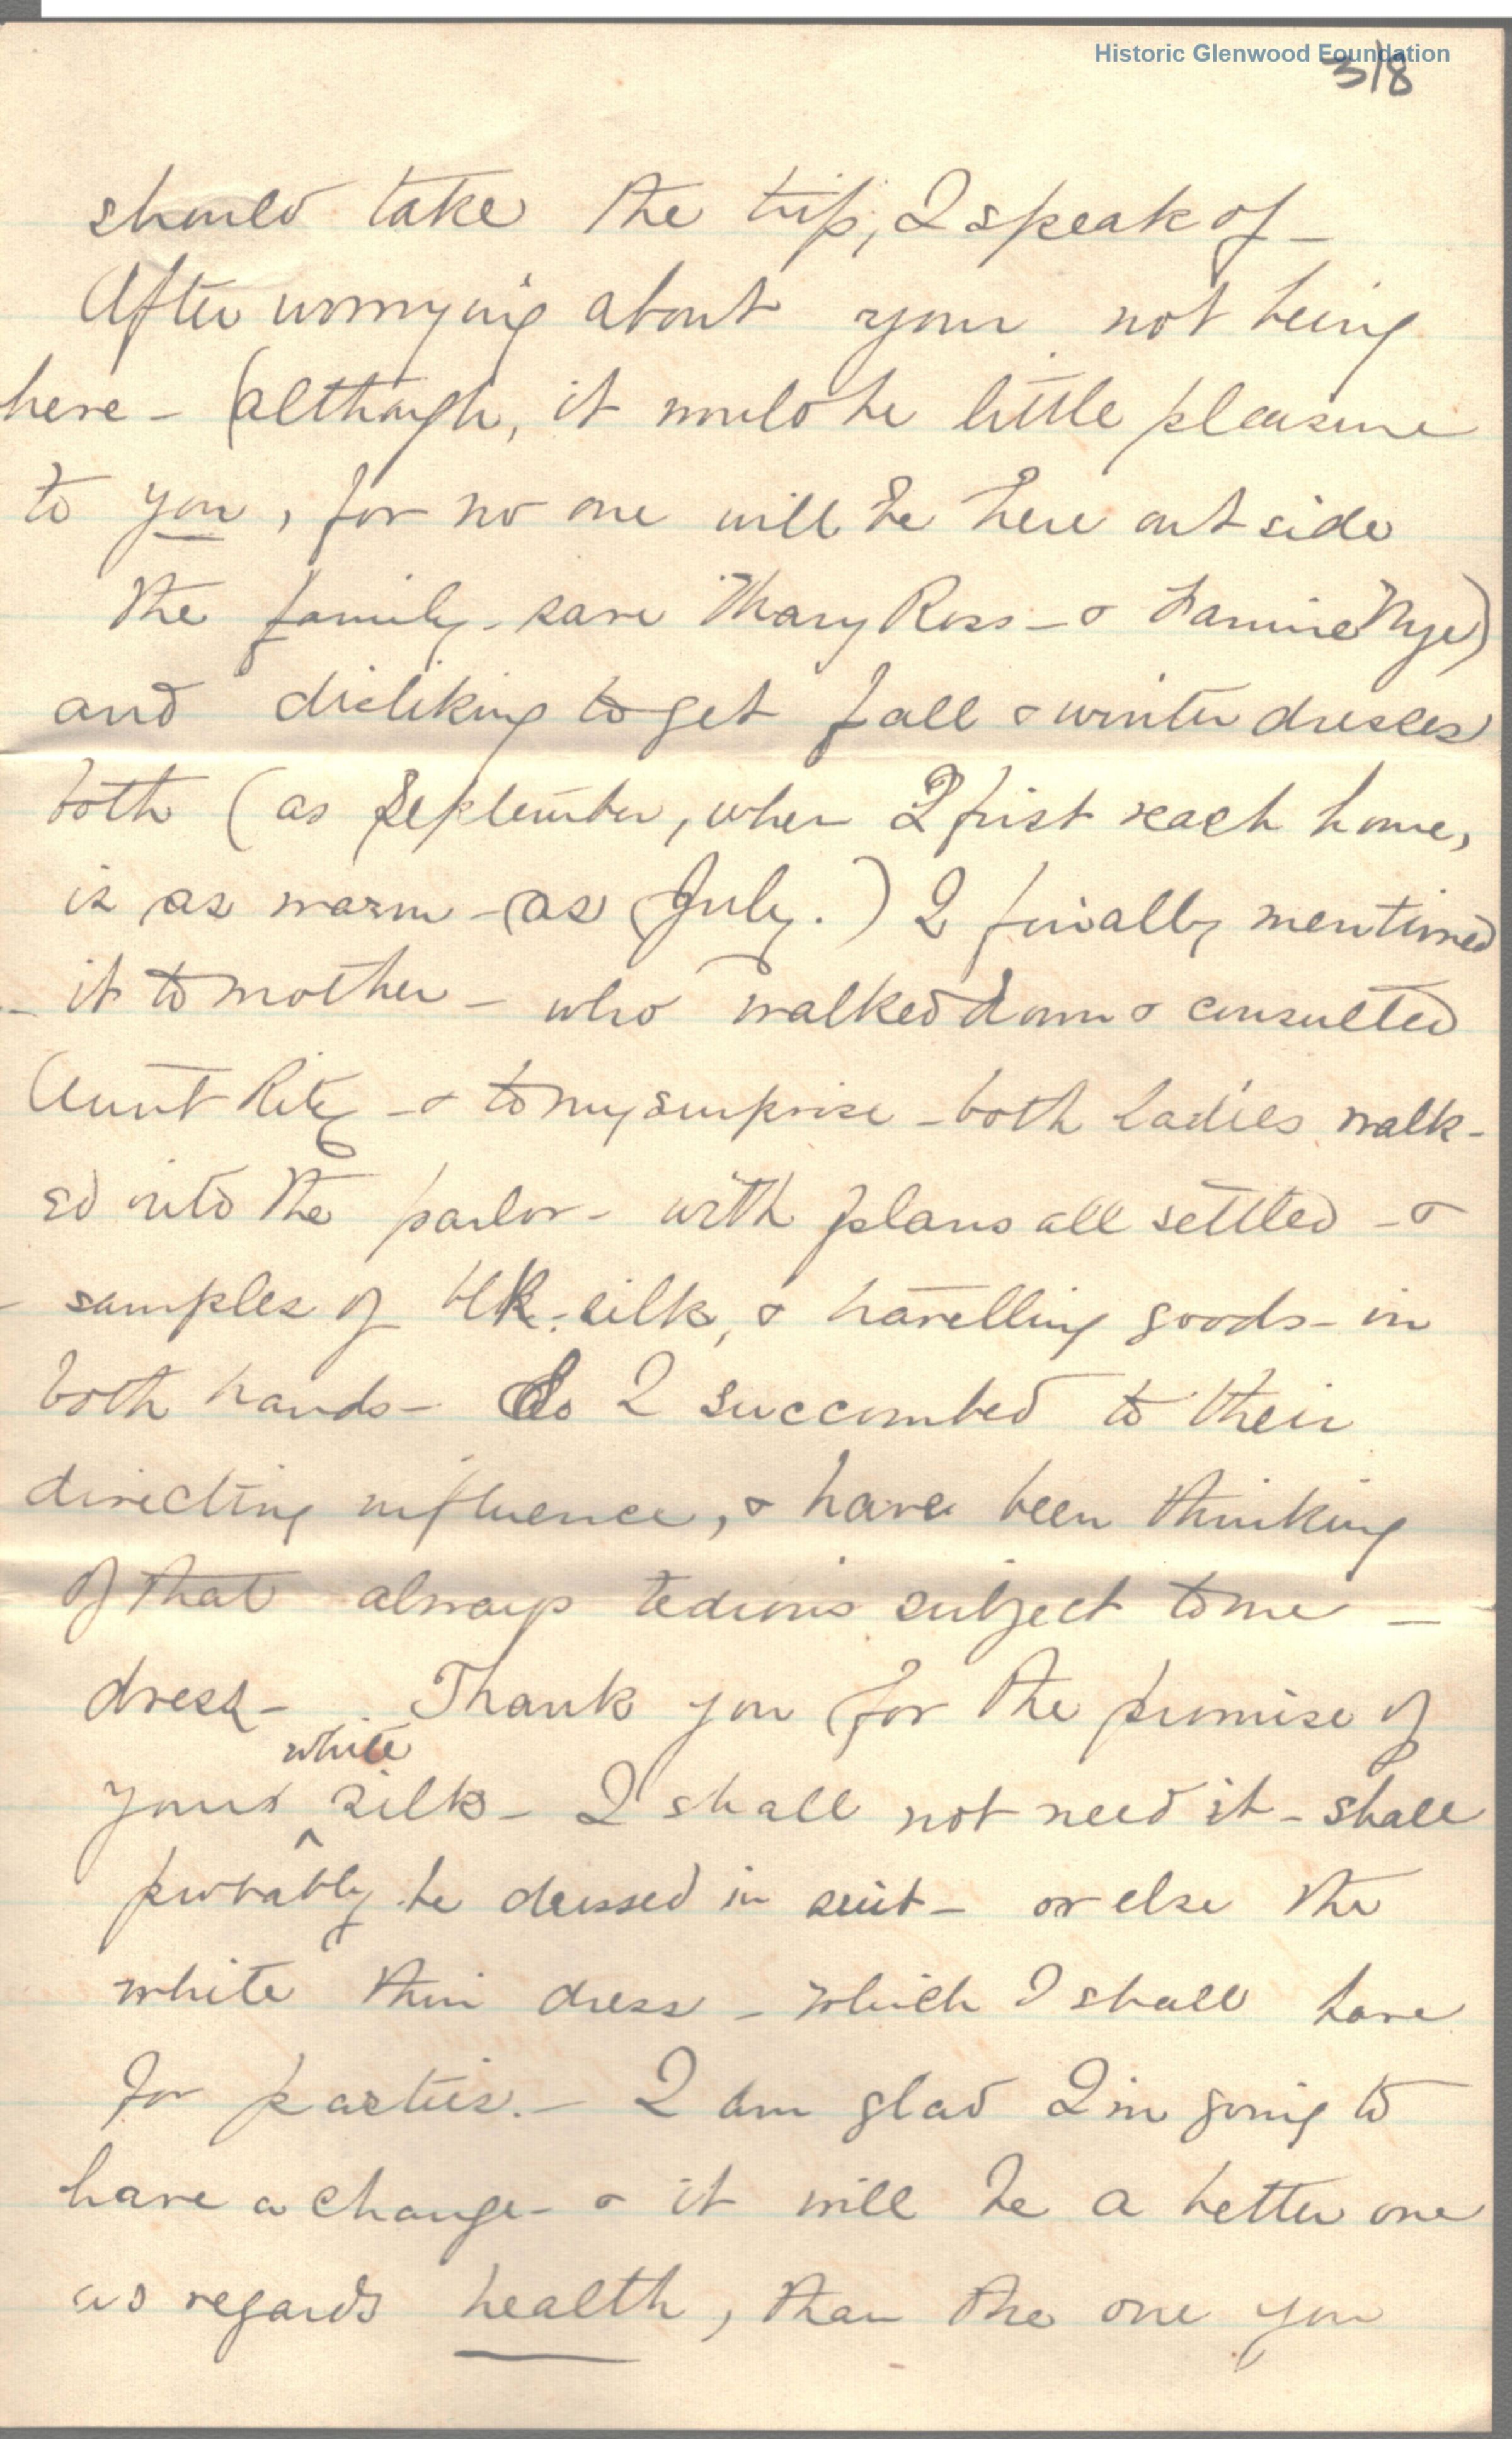 Historic Glenwood Foundation
3/8
should take the trip, I speak of –
After worrying about your not being
here – (although, it would be little pleasure
to you, for no one will be here outside
the family – save Mary Ross – & Fannie Nye)
and disliking to get fall & winter dresses
both (as September, when I first reach home,
is as warm – as July.) I finally mentioned
– it to mother – who walked down & consulted
Aunt Rity – & to my surprise – both ladies walk-
ed into the parlor – with plans all settled – &
– samples of blk. silk, & travelling goods – in
both hands – So I succombed to their
directing influence, & have been thinking
of that always tedious subject to me –
dress – Thank you for the promise of
white
your ^ silk – I shall not need it – shall
probably be dressed in suit – or else the
white thin dress – which I shall have
for parties. – I am glad I'm going to
have a change – & it will be a better one
as regards health, than the one you